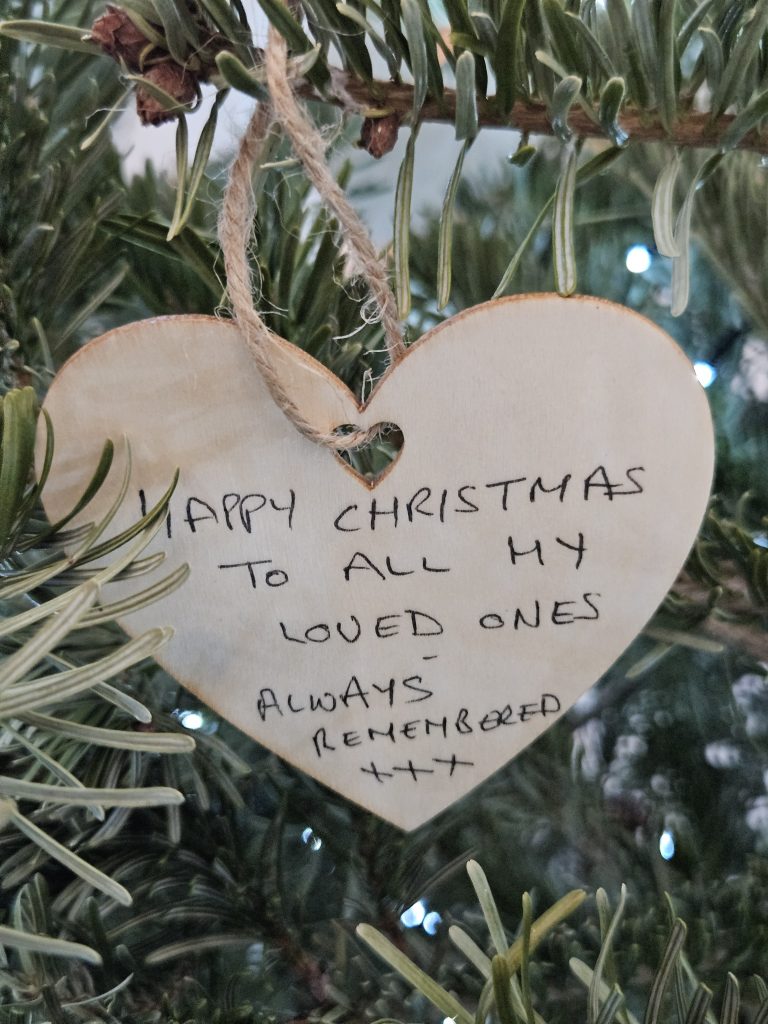 HAPPY CHRISTMAS
TO ALL MY
LOVED ONES
-
ALWAYS
REMEMBERED
XXX